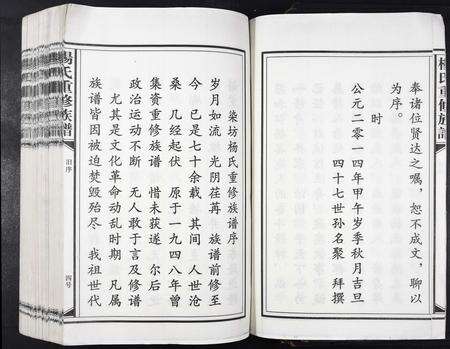 杨氏重修族谱
奉诸位贤达之嘱，恕不成文，聊以
为序。
时
公元二零一四年甲午岁季秋月吉旦
四十七世孙名聚 拜撰
染坊杨氏重修族谱序
岁月如流 光阴荏苒 族谱前修至
今 已是七十余载 其间 人世沧
桑 几经起伏 原于一九四八年曾
集资重修族谱 惜未获遂 尔后
政治运动不断 无人敢于言及修谱
尤其是文化革命动乱时期 凡属
族谱皆因被迫焚毁殆尽 我祖世代
杨氏重修族谱
旧序
四号